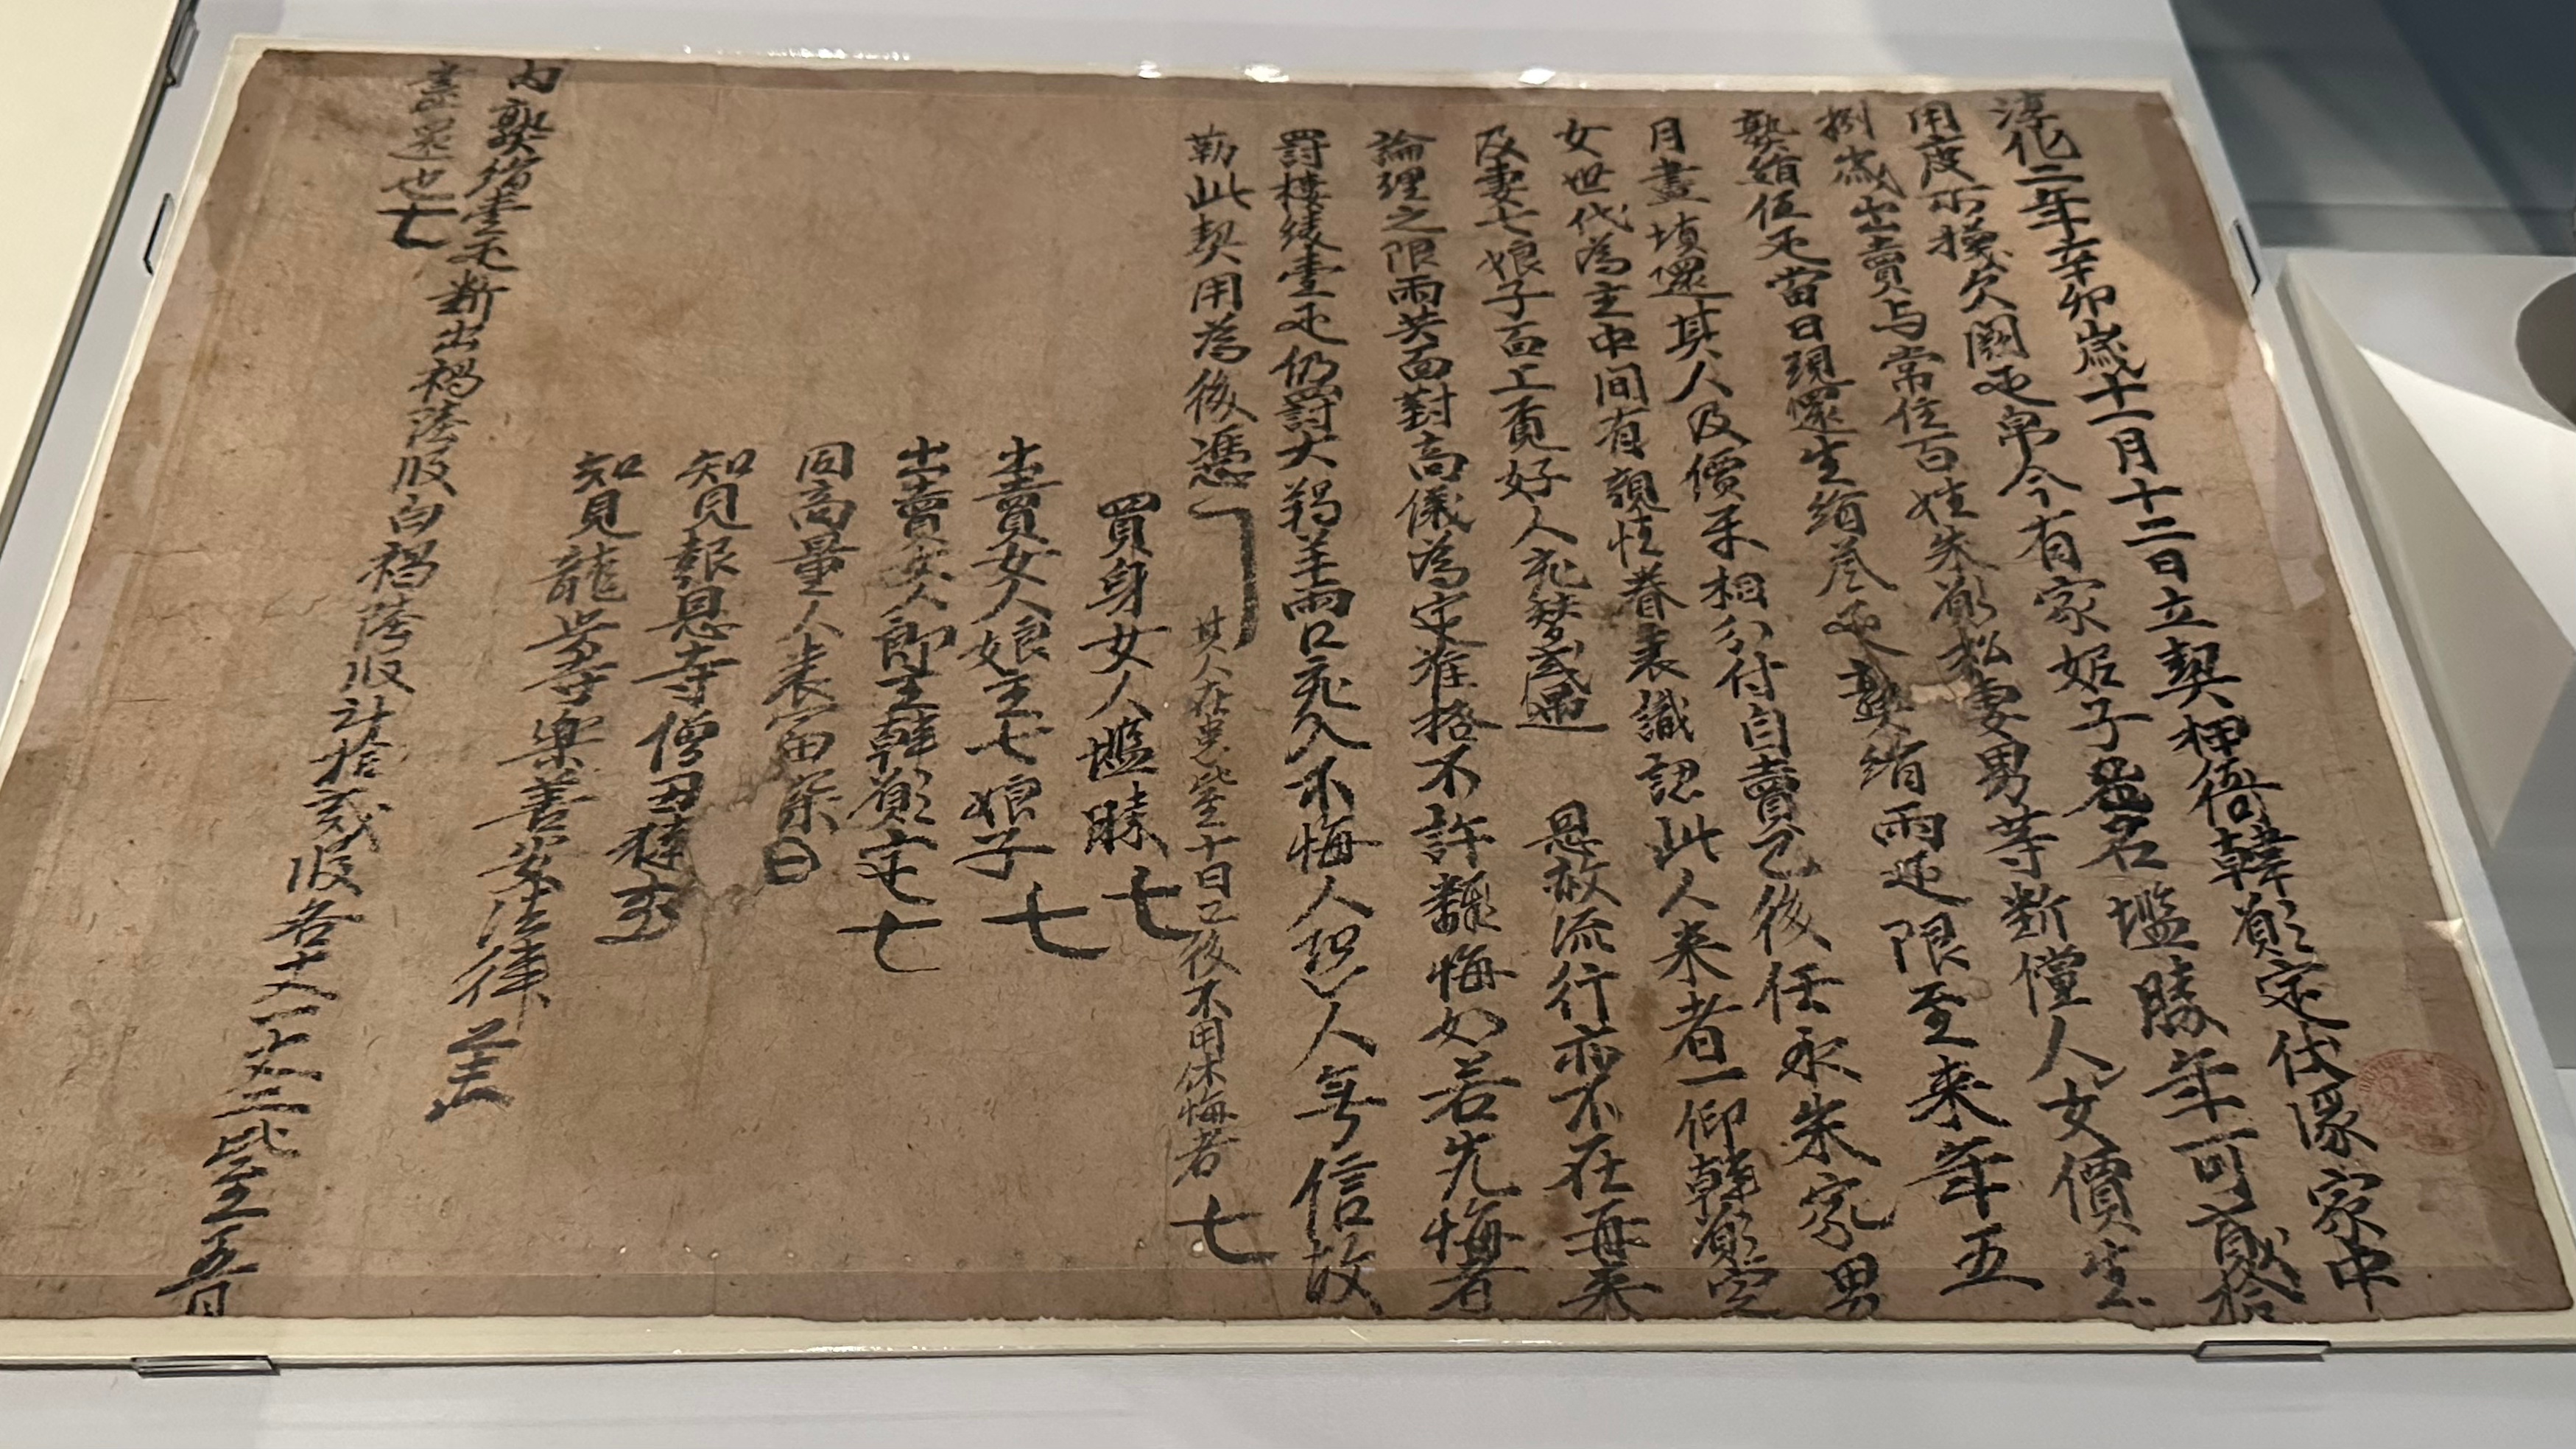 淳化二年辛卯歲十一月十二日立契押衙韓願定伏緣家中
用度不攓欠闕疋帛今有家姬子名䀋勝年可貳拾
捌歲出賣与常住百姓朱願松妻男等斷償人女價生
熟絹伍疋當日現還生絹叁疋熟絹兩疋限至來年五
月盡填還其人及價互相分付自賣已後任永朱家男
女世代為主中間有親性眷表識認此人来者一仰韓願定
及妻七娘子面上覓好人充替或遇恩赦流行亦不在再来
論理之限兩共面對商儀為定准格不許翻悔如若先悔者
罰樓綾壹疋仍罰大羯羊兩口充入不悔人恐人無信故
勒此契用為後憑 其人在患比至十日已後不用休悔者 七
買身女人䀋勝 七
出賣女人娘主七娘子 七
出賣女人郎主韓願定 七
同商量人袁富深
知見報恩寺僧丑撻
知見龍興寺樂善安法律
內熟絹壹疋斷出褐陸段白褐陸段計拾貳段各丈一丈二比至五月
盡還也 七